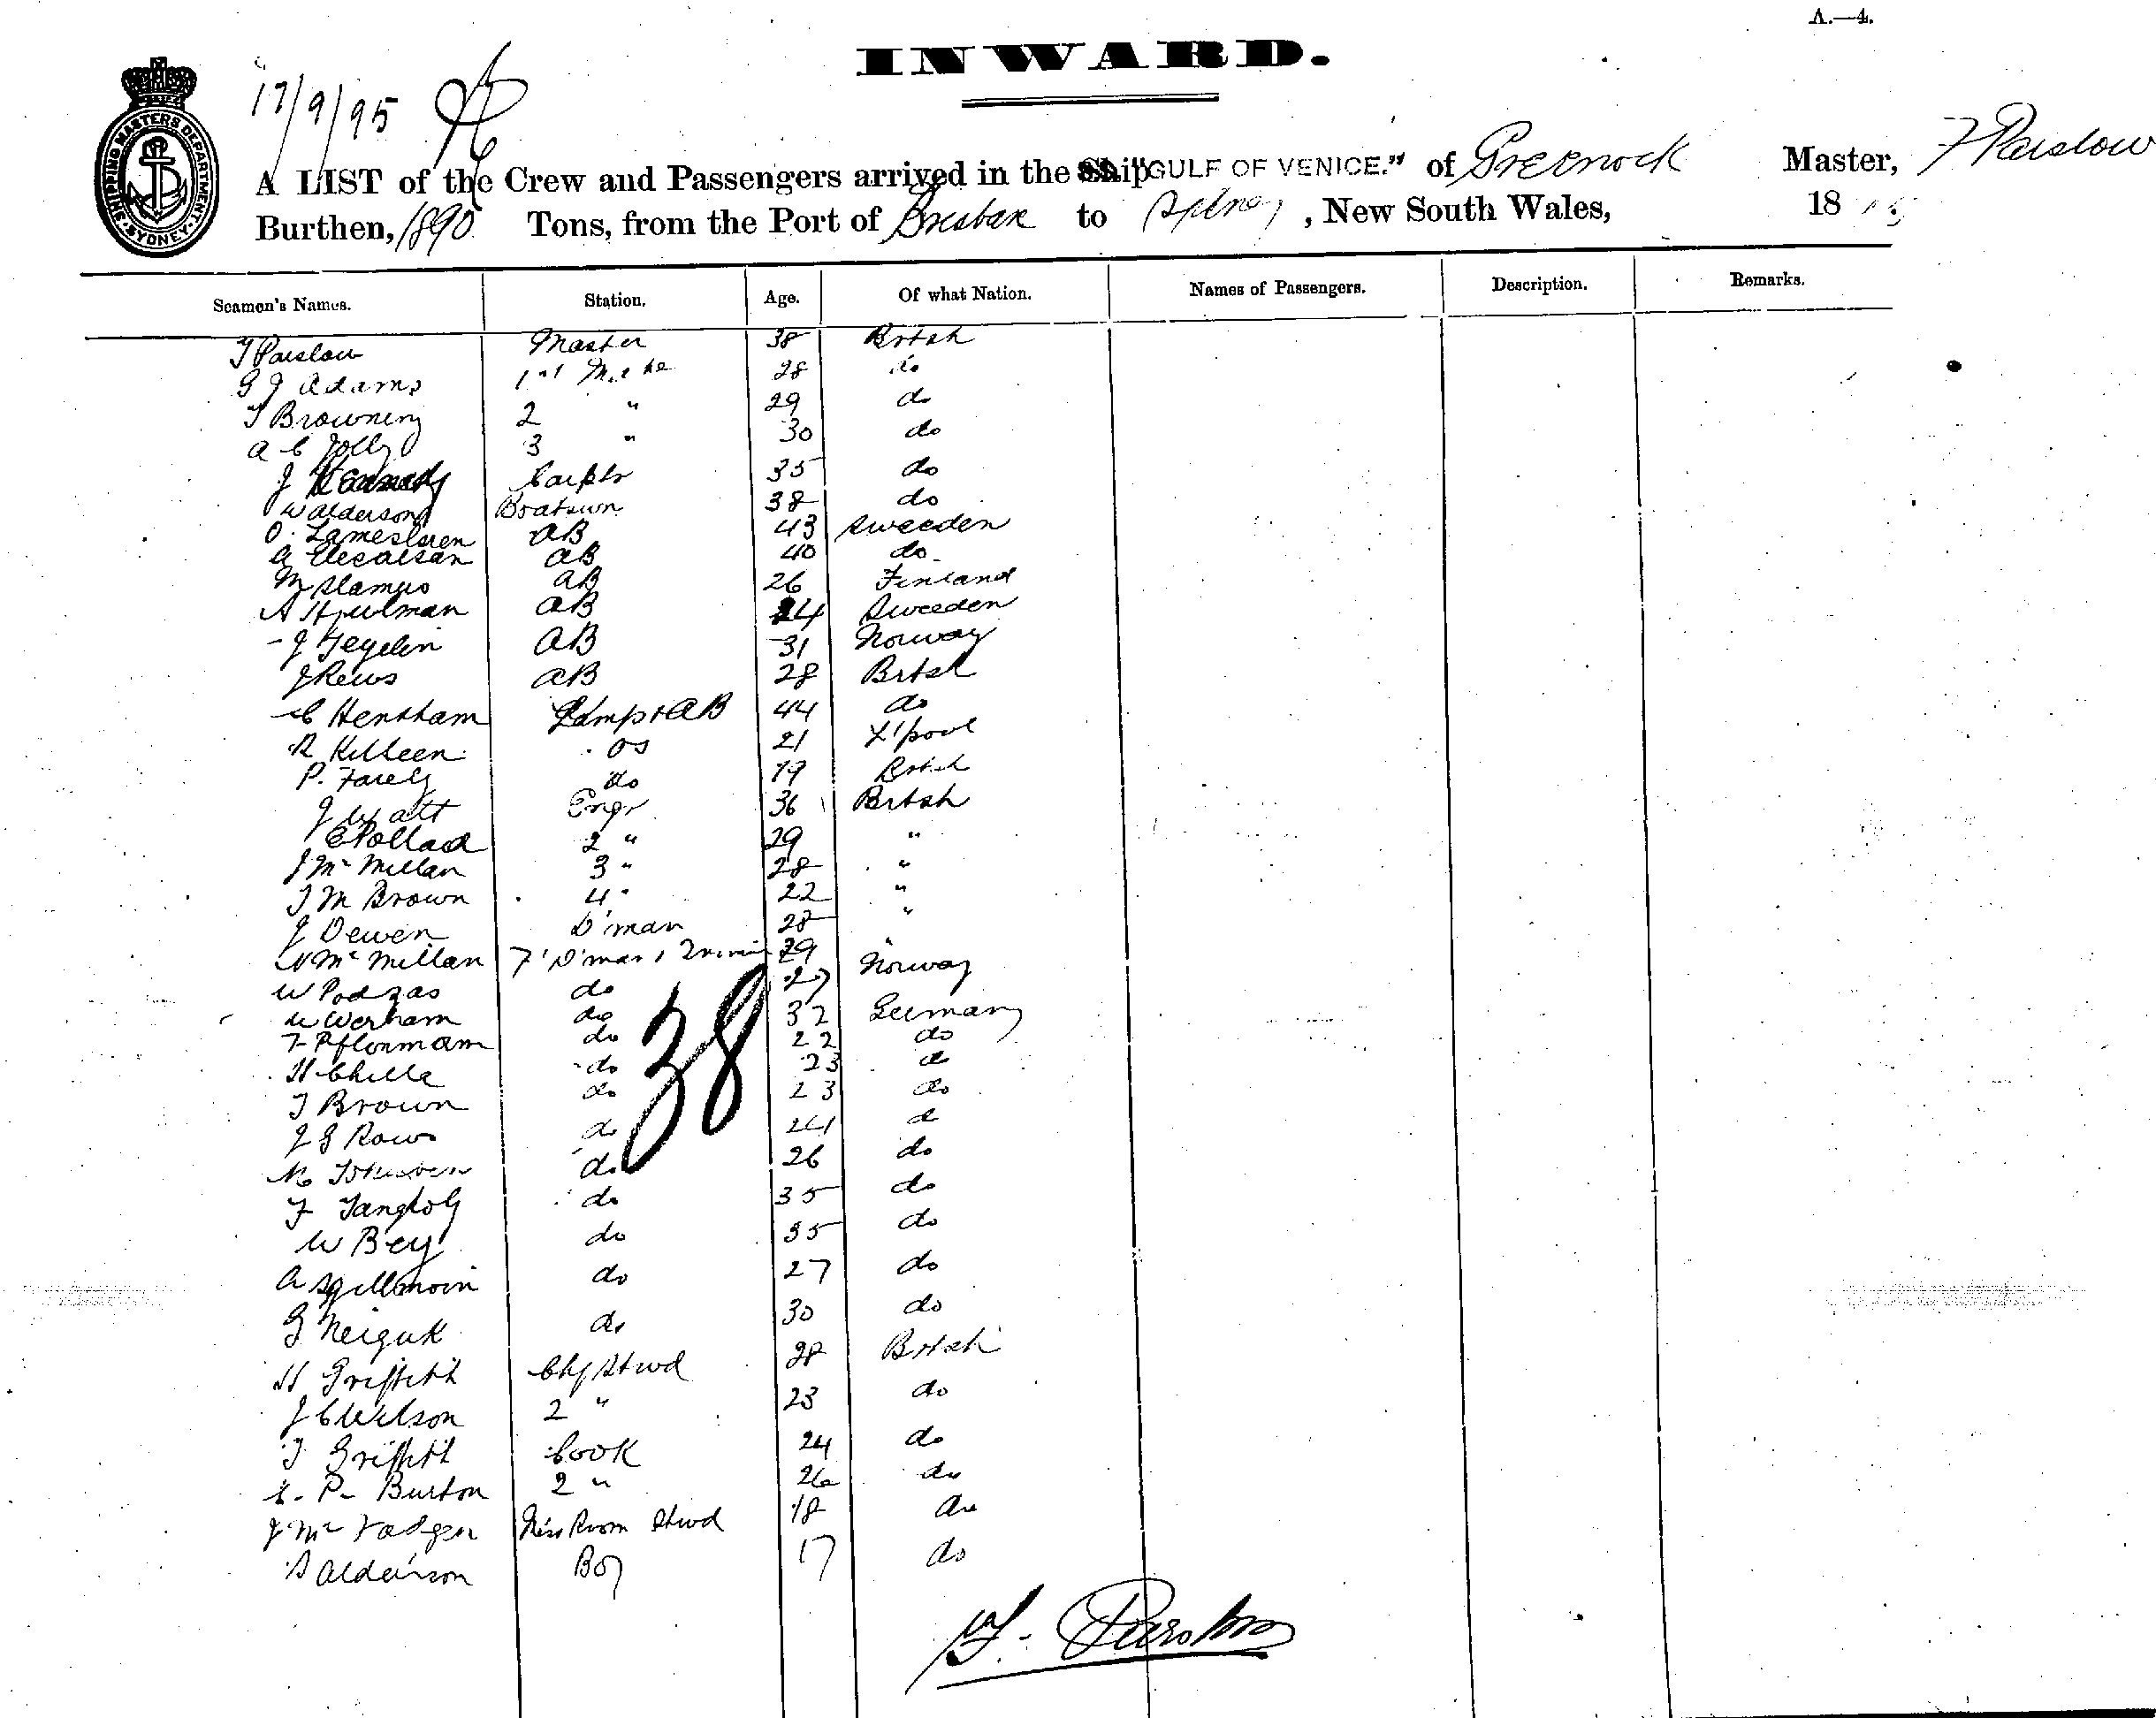 A.—4.
INWARD.
17/9/95
SHIPPING MASTERS DEPARTMENT SYDNEY
A LIST of the Crew and Passengers arrived in the Ship "GULF OF VENICE." of Greenock Master, F Parslow
Burthen, 1890 Tons, from the Port of Brisbane to Sydney, New South Wales, 18
Seamen's Names. Station. Age. Of what Nation. Names of Passengers. Description. Remarks.
F Parslow Master 38 Brtsh
G J Adams 1st Mate 28 do
T Browning 2 " 29 do
A C Jolly 3 " 30 do
J Kennedy Carptr 35 do
W Alderson Boatswn 38 do
O. AB 43 Sweeden
AB 40 do
M AB 26 Finland
A AB 24 Sweeden
J AB 31 Norway
J Rews AB 28 Brtsh
C Hensham Lamps & AB 44 do
R Killeen OS 21 L'pool
P. Farely do 19 Brtsh
J Watt Engr 36 Brtsh
E Pollad 2 " 29 "
J Mc Millan 3 " 28 "
J M Brown 4 " 22 "
J Dewen D'man 28 "
N Mc Millan 29 "
W Podzas do 27 Norway
W Werham do 32 Germany
F Pflonmam do 22 do
H Chilla do 23 do
J Brown do 23 do
J G Rows do 24 do
do 26 do
F Tangholz do 35 do
W Bey do 35 do
A do 27 do
G Neiguk do 30 do
38
H Griffith Chf Stwd 28 Brtsh
J C Wilson 2 " 23 do
T Griffith Cook 24 do
E. P. Burton 2 " 26 do
J Mc Fadgen Mess Room Stwd 18 do
S Alderson Boy 17 do
F. Parslow